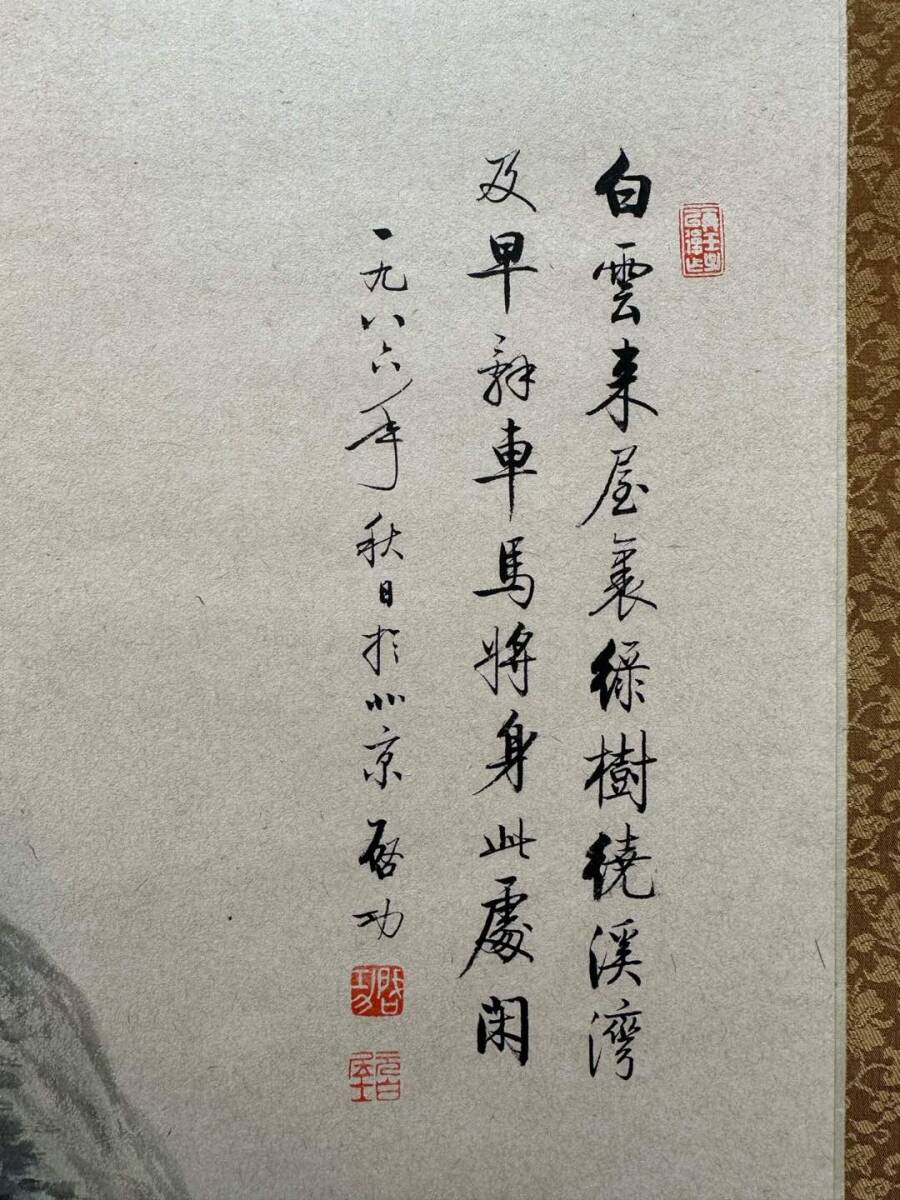 白雲来屋裏緑樹繞溪灣
及早辭車馬將身此處閑
一九八六年秋日於北京啓功
啓功
元白